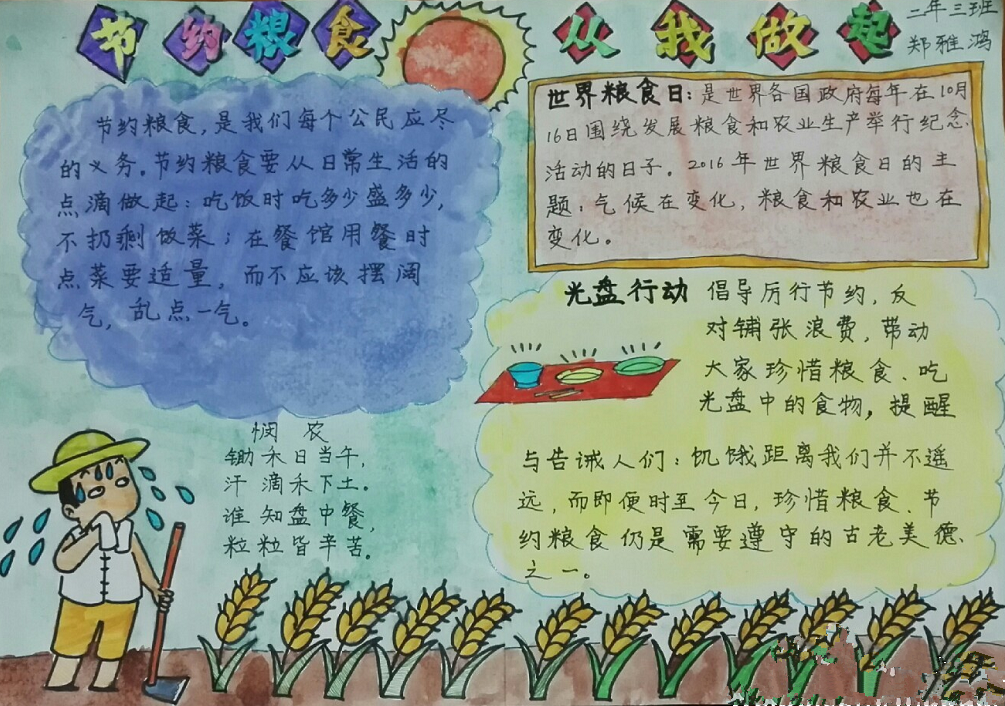 节约粮食 从我做起
二年三班
郑雅鸿
节约粮食,是我们每个公民应尽
的义务。节约粮食要从日常生活的
点滴做起:吃饭时吃多少盛多少,
不扔剩饭菜;在餐馆用餐时
点菜要适量,而不应该摆阔
气,乱点一气。
世界粮食日:是世界各国政府每年在10月
16日围绕发展粮食和农业生产举行纪念
活动的日子。2016年世界粮食日的主
题:气候在变化,粮食和农业也在
变化。
光盘行动 倡导厉行节约,反
对铺张浪费,带动
大家珍惜粮食、吃
光盘中的食物,提醒
与告诫人们:饥饿距离我们并不遥
远,而即便时至今日,珍惜粮食、节
约粮食仍是需要遵守的古老美德
之一。
悯农
锄禾日当午,
汗滴禾下土。
谁知盘中餐,
粒粒皆辛苦。